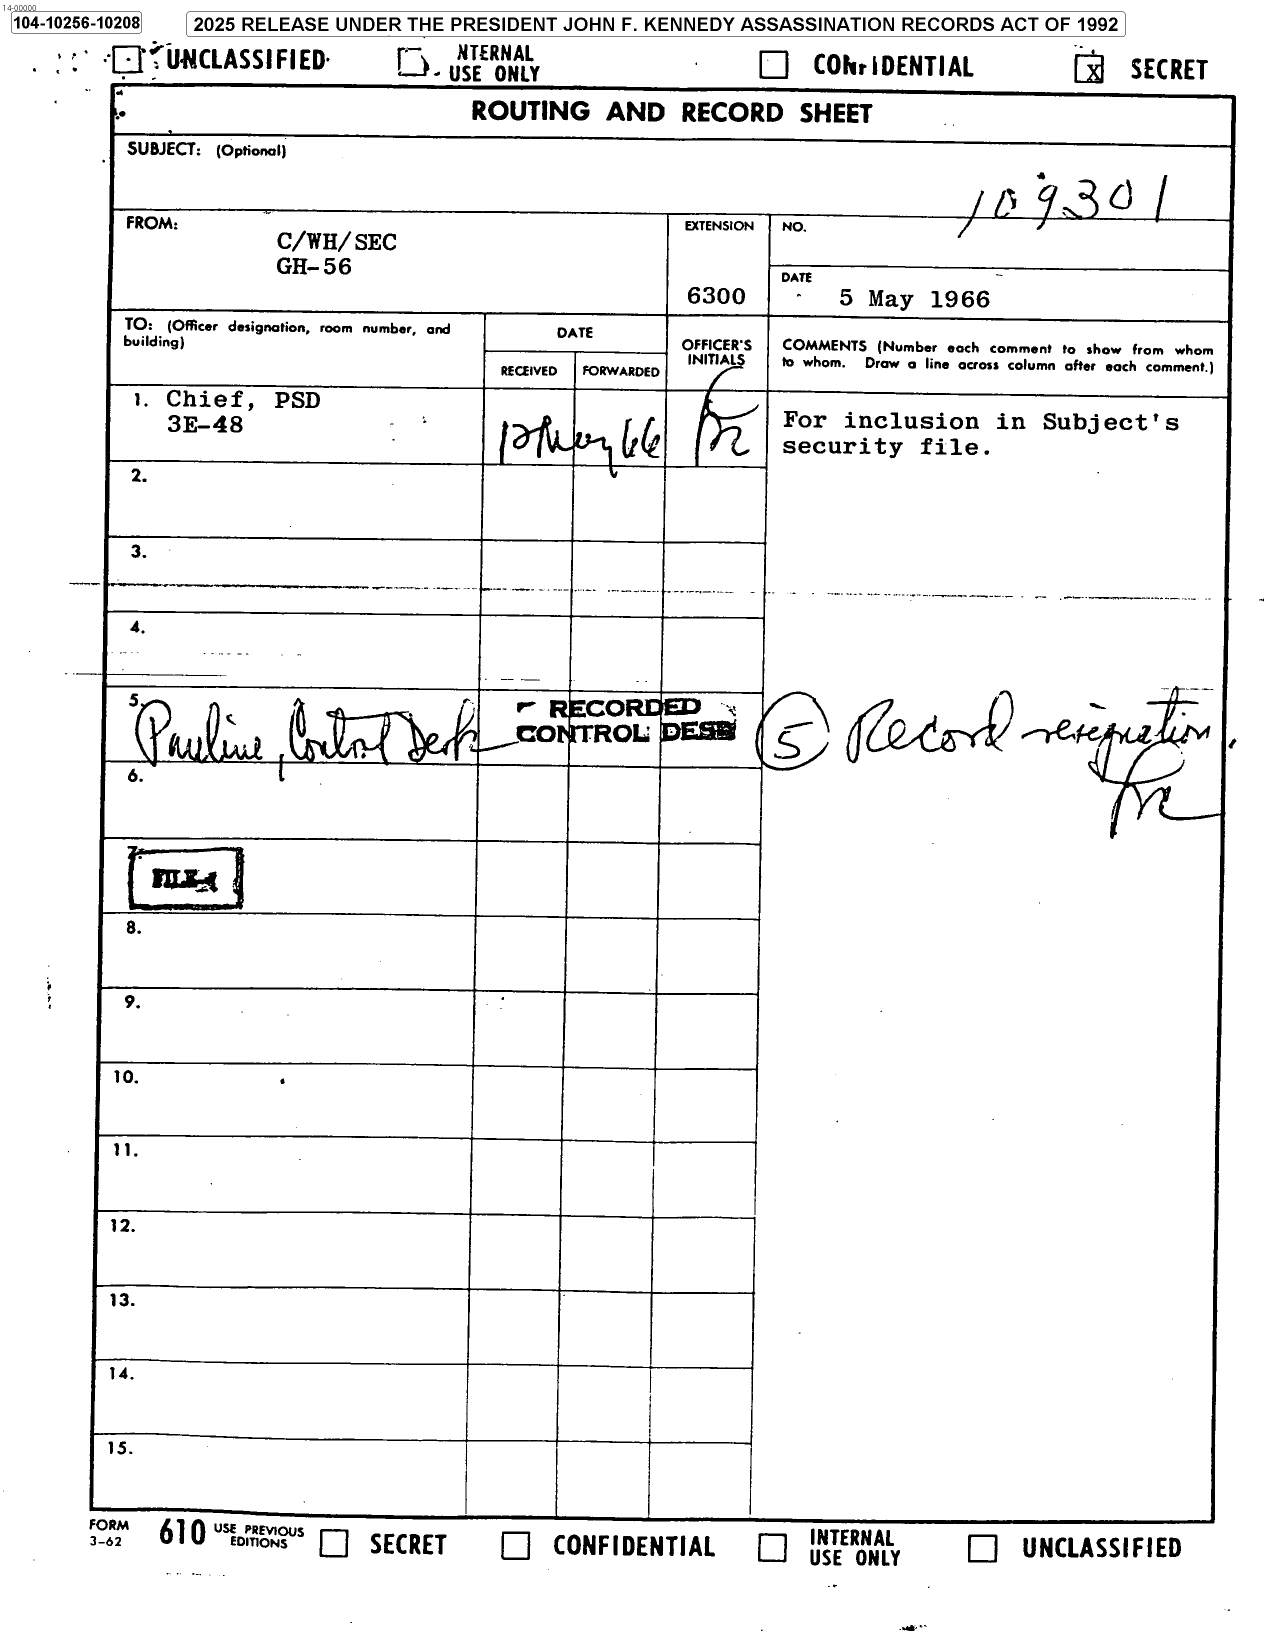 14-00000
104-10256-10208
2025 RELEASE UNDER THE PRESIDENT JOHN F. KENNEDY ASSASSINATION RECORDS ACT OF 1992
UNCLASSIFIED
NTERNAL
USE ONLY
CONFIDENTIAL
X SECRET
ROUTING AND RECORD SHEET
SUBJECT: (Optional)
109301
FROM:
C/WH/SEC
GH-56
EXTENSION
6300
NO.
DATE
5 May 1966
TO: (Officer designation, room number, and
building)
DATE
RECEIVED
FORWARDED
OFFICER'S
INITIALS
COMMENTS (Number each comment to show from whom
to whom. Draw a line across column after each comment.)
1. Chief, PSD
3E-48
12 May 66
For inclusion in Subject's
security file.
2.
3.
4.
5.
Pauline, Control Desk
RECORDED
CONTROL DESK
5 Record resignation.
6.
7.
FILE
8.
9.
10.
11.
12.
13.
14.
15.
FORM
3-62
610
USE PREVIOUS
EDITIONS
SECRET
CONFIDENTIAL
INTERNAL
USE ONLY
UNCLASSIFIED